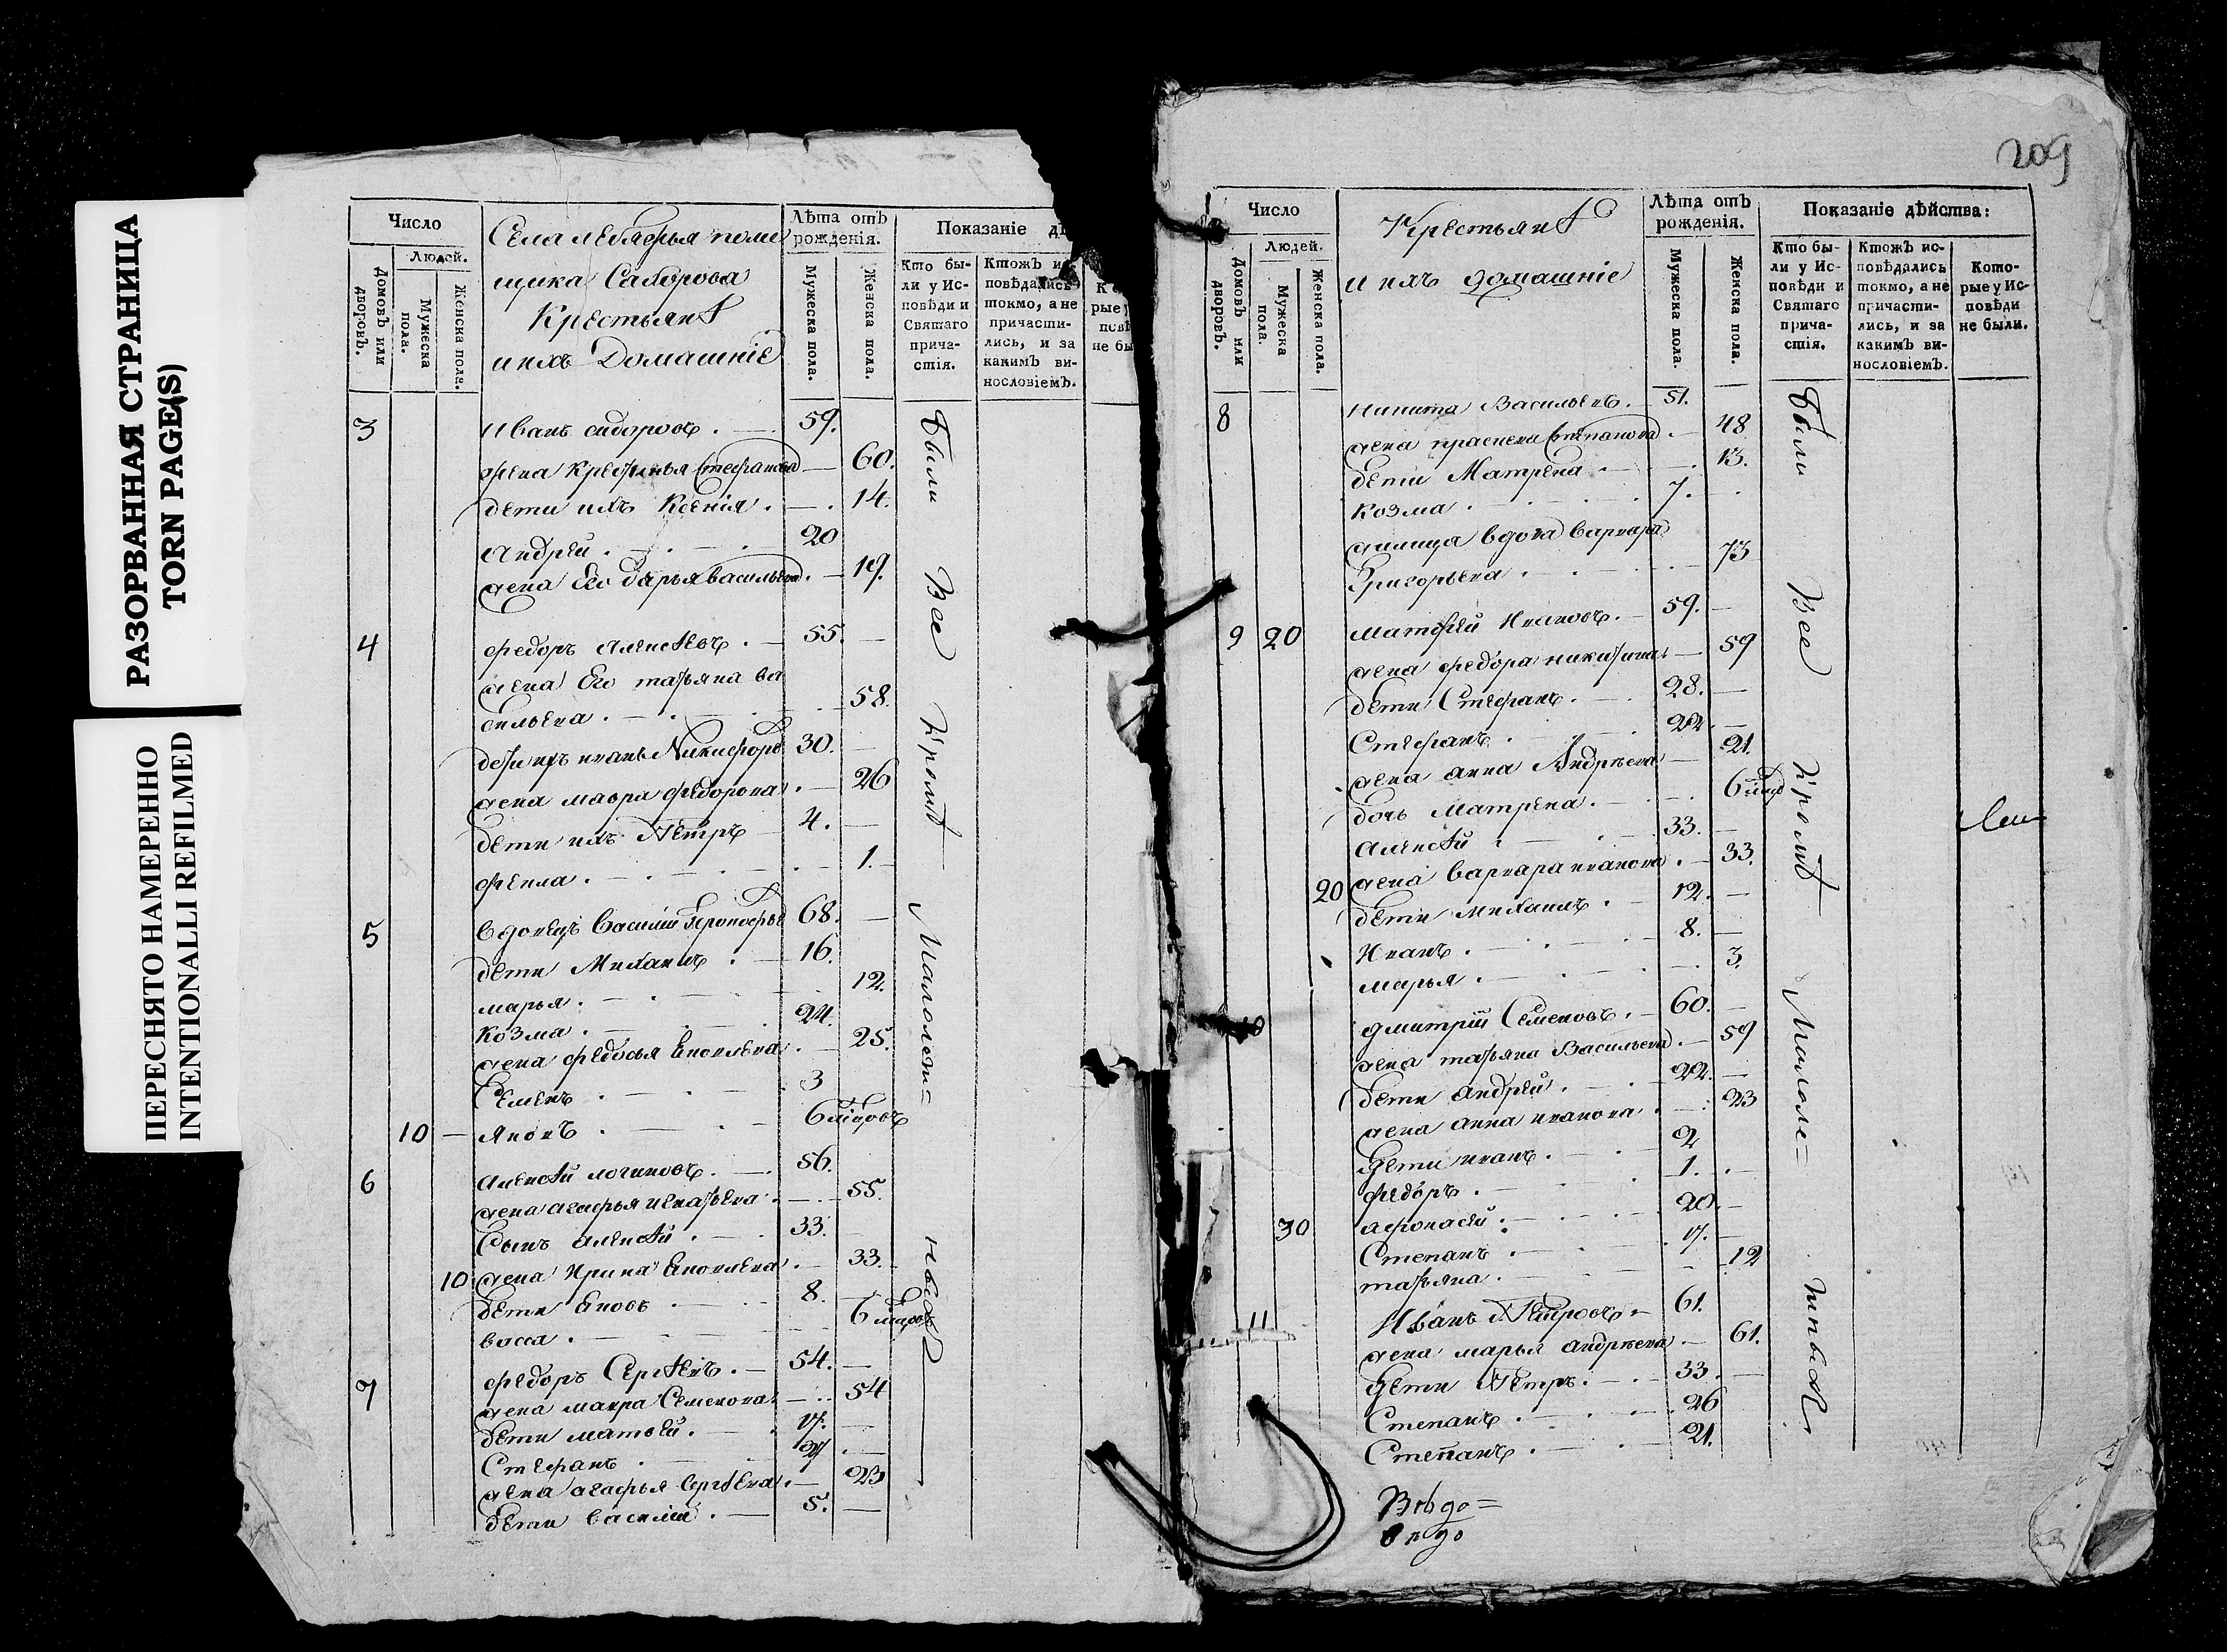 РАЗОРВАННАЯ СТРАНИЦА
TORN PAGE(S)
ПЕРЕСНЯТО НАМЕРЕННО
INTENTIONALLI REFILMED
Число
Людей.
Домовъ или дворовъ.
Мужеска пола.
Женска пола.
Села
щика
Крестьянѣ
и ихъ Домашніе
Лѣта отъ рожденія.
Мужеска пола.
Женска пола.
Показаніе
Кто были у Исповѣди и Святаго причастія.
Ктожъ исповѣдались токмо, а не причастились, и за какимъ винословіемъ.
не бы
3 Иванъ сидоровъ. 59.
жена Стефанова 60.
дети ихъ Ксенія. 14.
Андрей. 20
жена Его дарья васильева. 19.
4 федоръ Алексѣевъ. 55.
жена Его татьяна ва
сильева. 58.
дети ихъ иванъ Никифоръ 30.
жена мавра федорова. 26
дети ихъ Петръ 4.
фекла. 1.
5 вдовецъ Василій 68.
дети Михаилъ. 16.
марья. 12.
Козма. 24.
жена федосья Яковлева. 25.
Семенъ. 3
10 Яковъ. 6
6 Алексѣй логиновъ. 56.
жена агафья 55.
Сынъ алексѣй. 33.
10 жена Ирина Яковлева. 33.
дети Яковъ. 8.
васса. 6
7 федоръ Сергѣевъ. 54.
жена мавра Семенова. 54
дети матвей. 17.
Стефанъ. 27
жена агафья Сергѣева. 23
дети василій. 5.
были Все Кромѣ Малолет=
нихъ
209
Число
Людей.
Домовъ или дворовъ.
Мужеска пола.
Женска пола.
Крестьянѣ
и ихъ домашніе
Лѣта отъ рожденія.
Мужеска пола.
Женска пола.
Показаніе дѣйства:
Кто были у Исповѣди и Святаго причастія.
Ктожъ исповѣдались токмо, а не причастились, и за какимъ винословіемъ.
Которые у Исповѣди не были.
8 никита Васильевъ. 51.
жена Степанова. 48
дети Матрена 13.
Козма. 7.
вдова варвара
Григорьева. 73
9 20 матфей Ивановъ. 59.
жена федора никитина. 59
дети Стефанъ. 28.
Стефанъ. 22
жена анна Андреева 21.
дочь матрена. 6
алексѣй. 33.
20 жена варвара иванова. 33.
дети михаилъ. 12.
Иванъ. 8.
марья. 3.
10 дмитрій Семеновъ. 60.
жена татьяна Васильева. 59
дети андрей. 22.
жена анна иванова. 23
дети иванъ. 2
федоръ. 1.
30 афонасей. 20
Степанъ. 17.
татьяна. 12
11 Иванъ Петровъ 61.
жена марья андреева 61.
дети Петръ. 33.
Степанъ. 26
Степанъ. 21.
были Все Кромѣ Малоле=
тныхъ